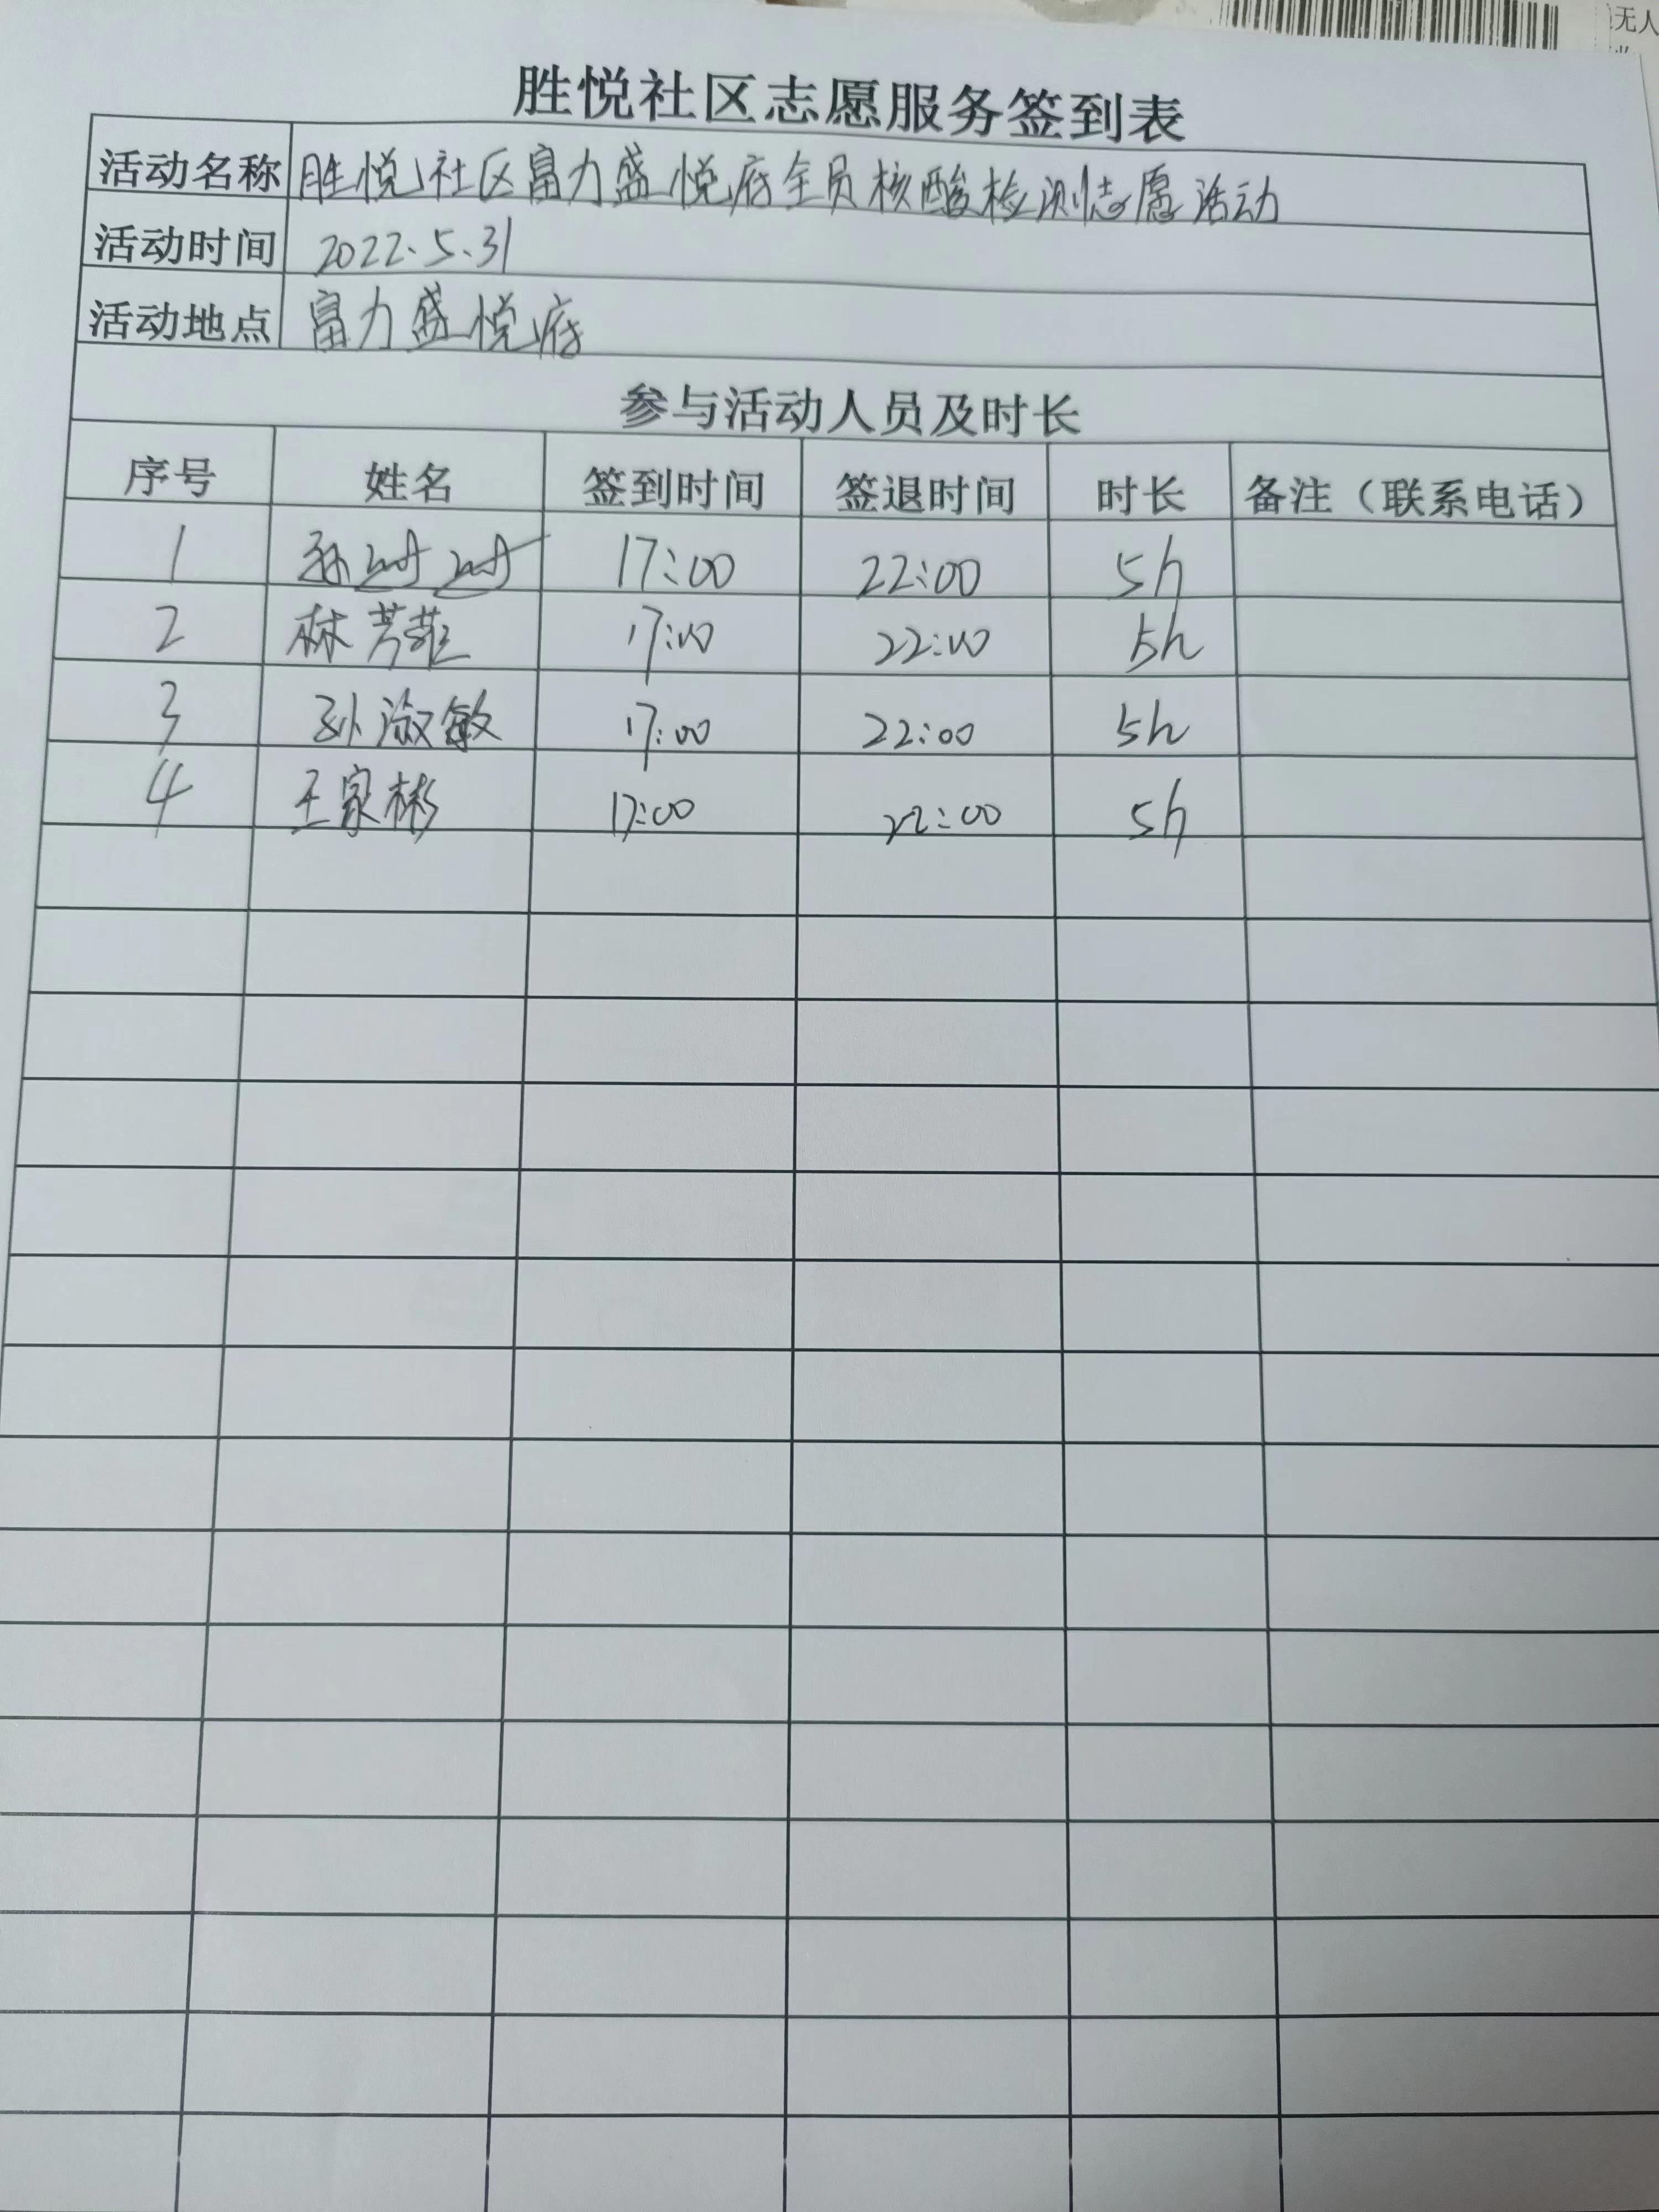 无人
胜悦社区志愿服务签到表
活动名称 胜悦社区富力盛悦府全员核酸检测志愿活动
活动时间 2022.5.31
活动地点 富力盛悦府
参与活动人员及时长
序号 姓名 签到时间 签退时间 时长 备注（联系电话）
1 孙 17:00 22:00 5h
2 林芳菲 17:00 22:00 5h
3 孙淑敏 17:00 22:00 5h
4 王家彬 17:00 22:00 5h